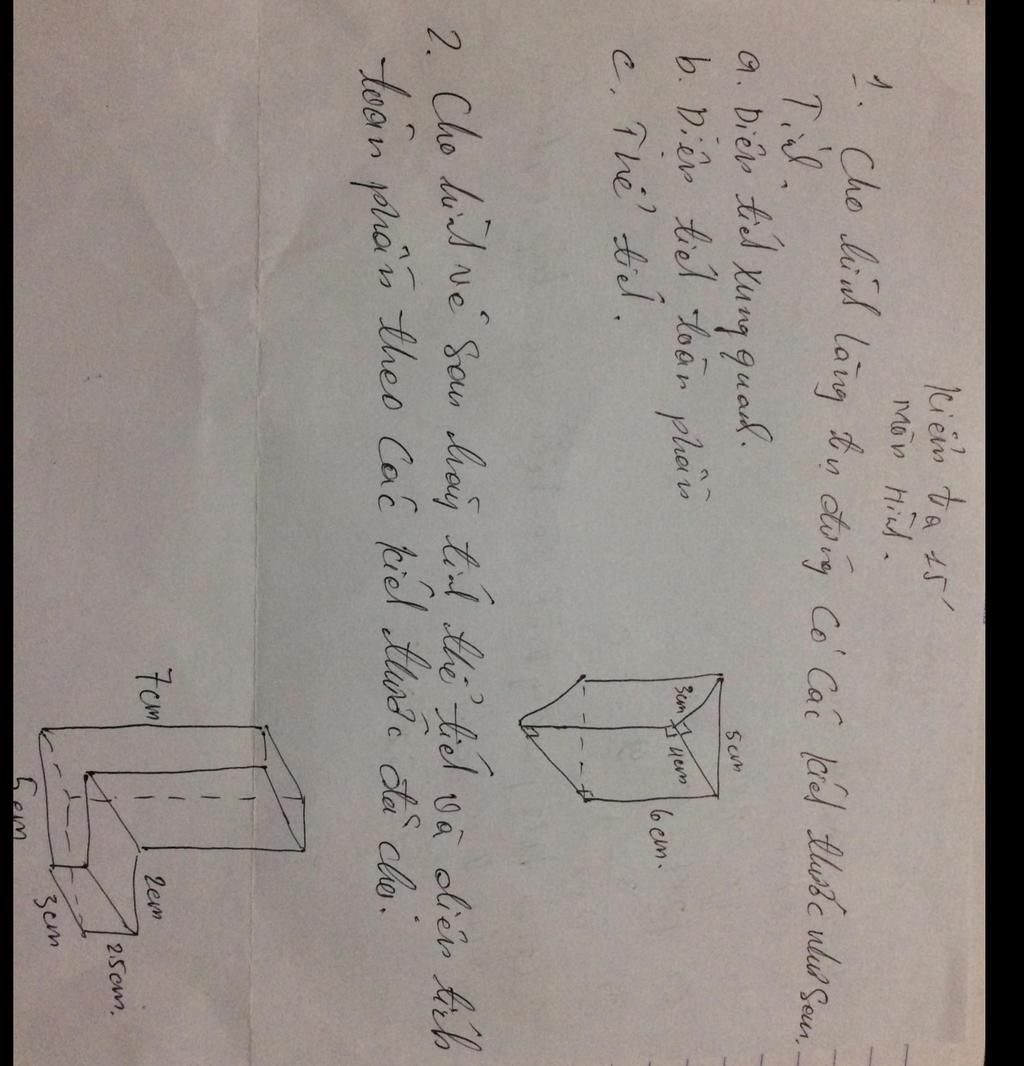 Kiểm tra 15'
Môn Hình.
1. Cho hình lăng trụ đứng có các kích thước như sau.
Tính
a. Diện tích xung quanh.
b. Diện tích toàn phần
c. Thể tích.
5cm
3cm
4cm
6cm.
2. Cho hình vẽ sau hãy tính thể tích và diện tích
toàn phần theo các kích thước đã cho.
7cm
2cm
2.5cm.
3cm
5cm